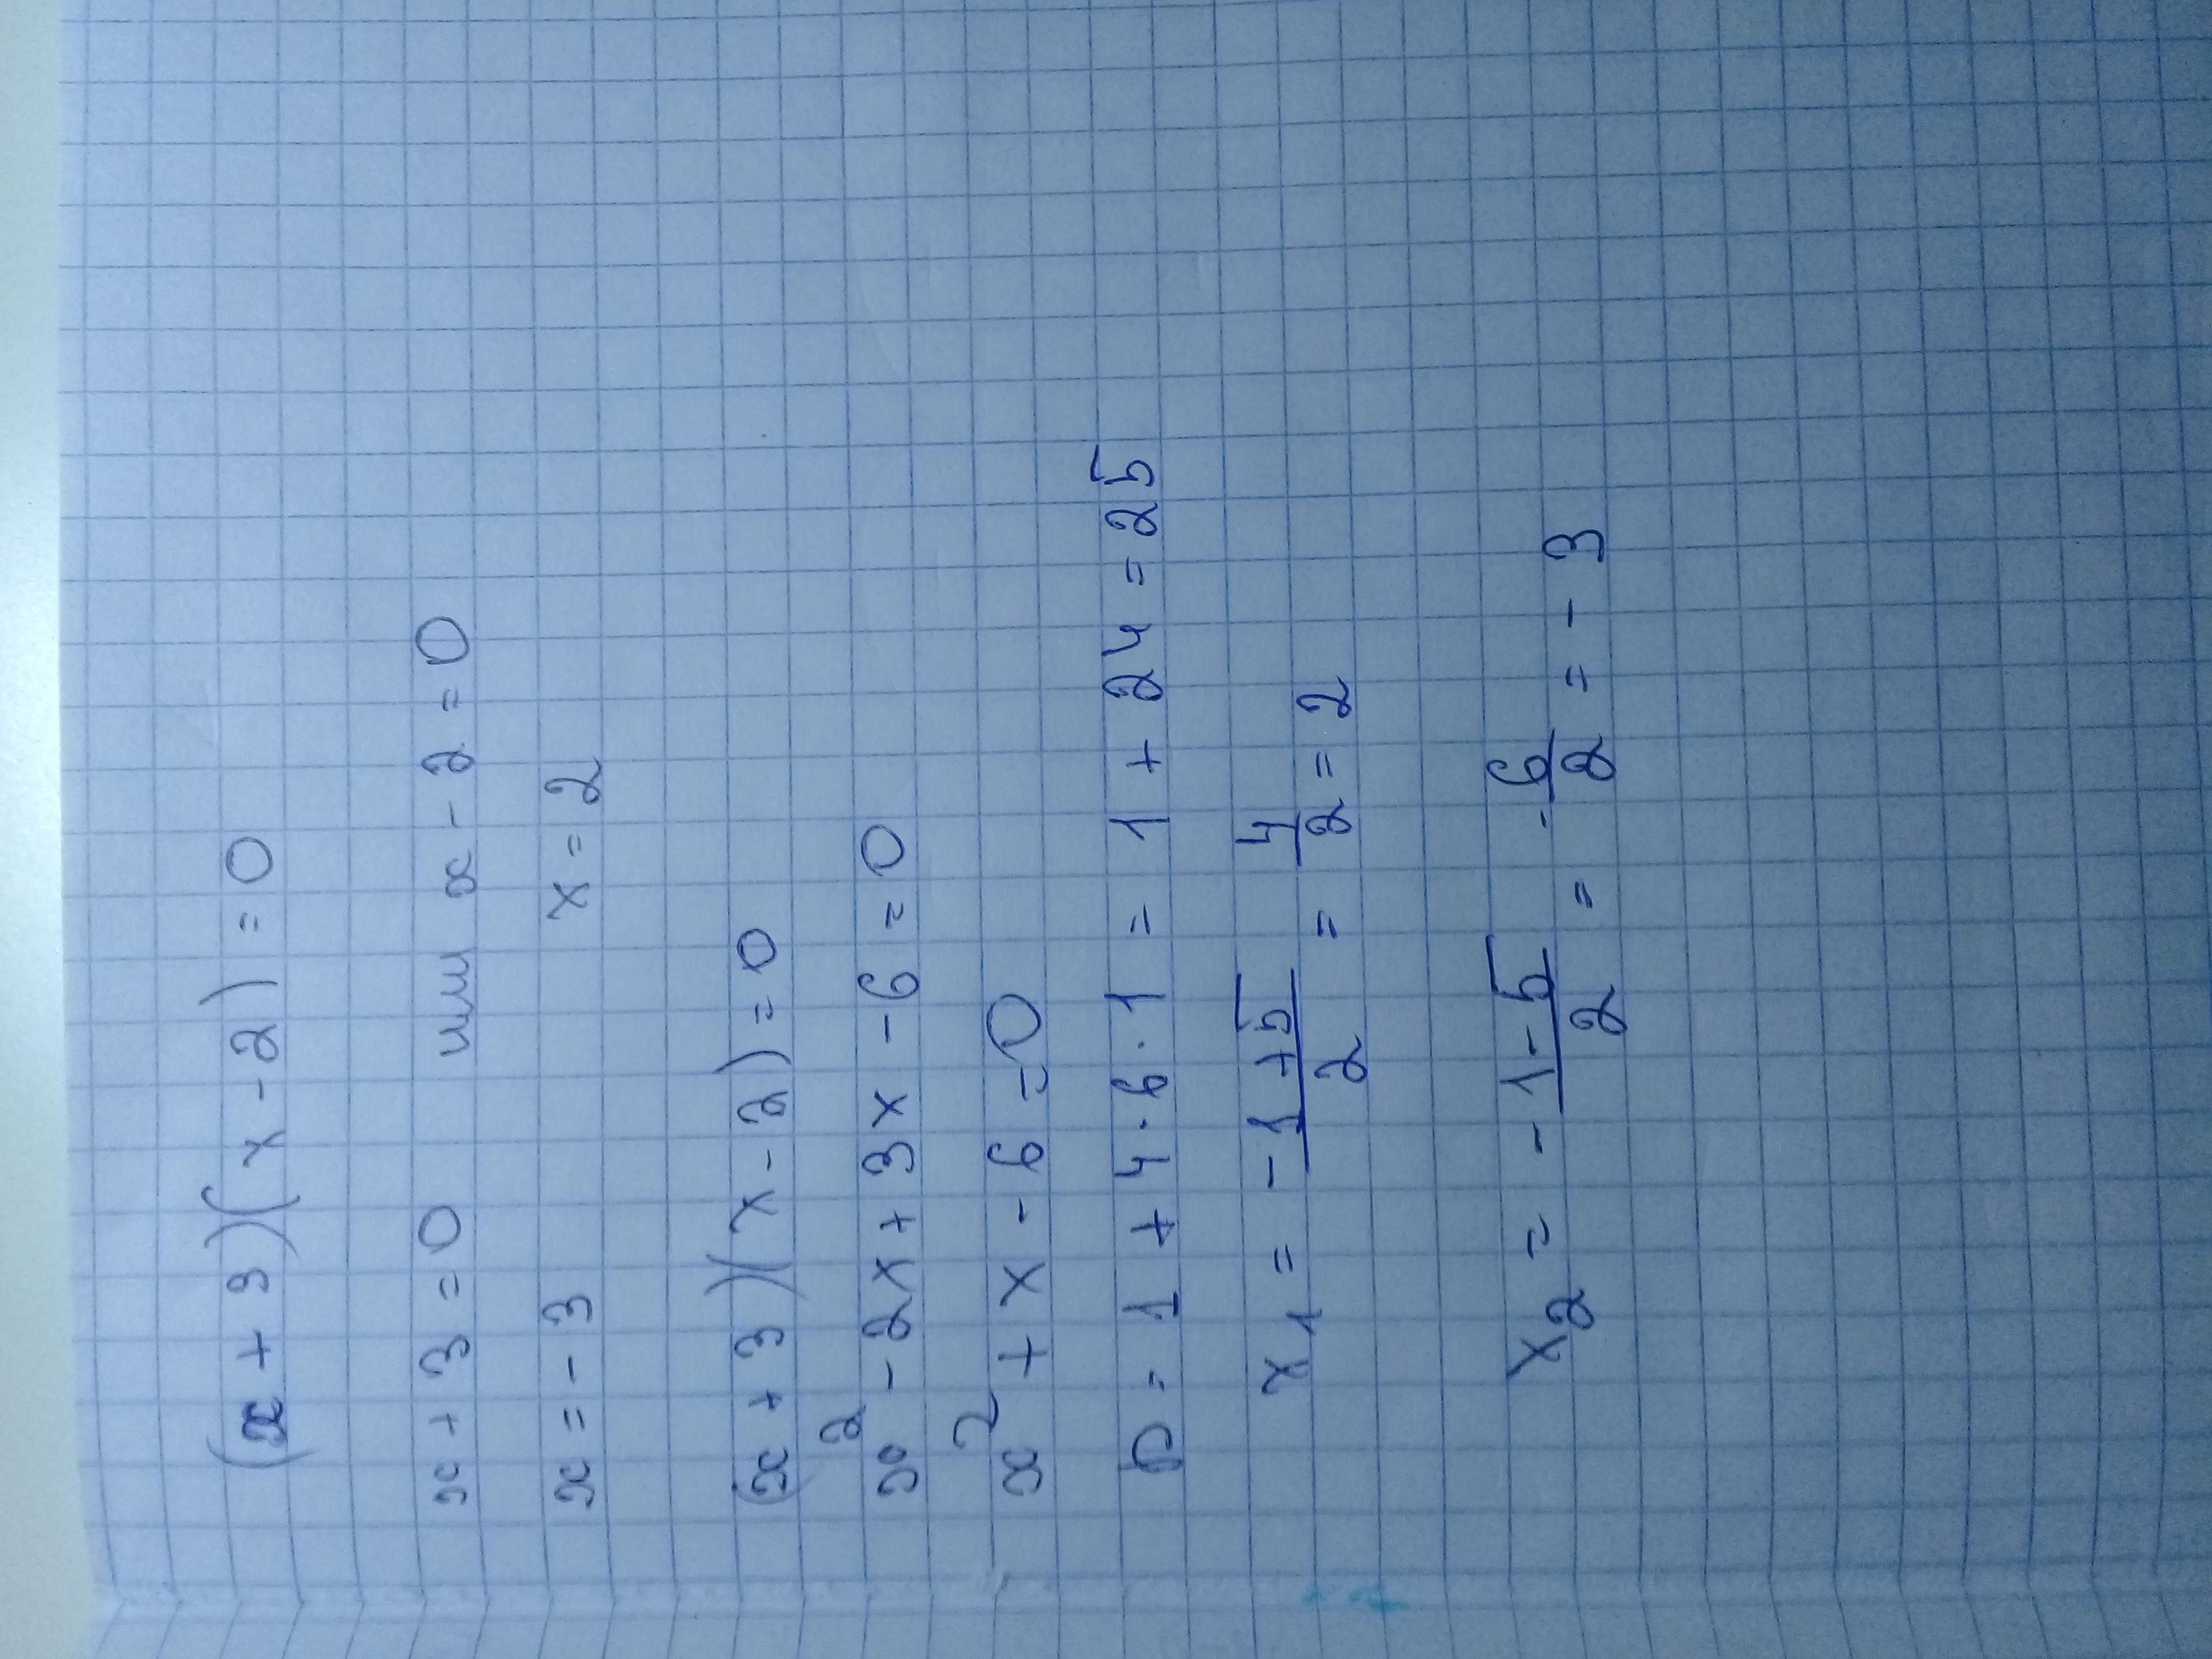 (x + 3)(x - 2) = 0
x + 3 = 0 или x - 2 = 0
x = - 3 x = 2
(x + 3)(x - 2) = 0
x² - 2x + 3x - 6 = 0
x² + x - 6 = 0
D = 1 + 4 · 6 · 1 = 1 + 24 = 25
x₁ = (-1 + 5)/2 = 4/2 = 2
x₂ = - (1 - 5)/2 = -6/2 = - 3